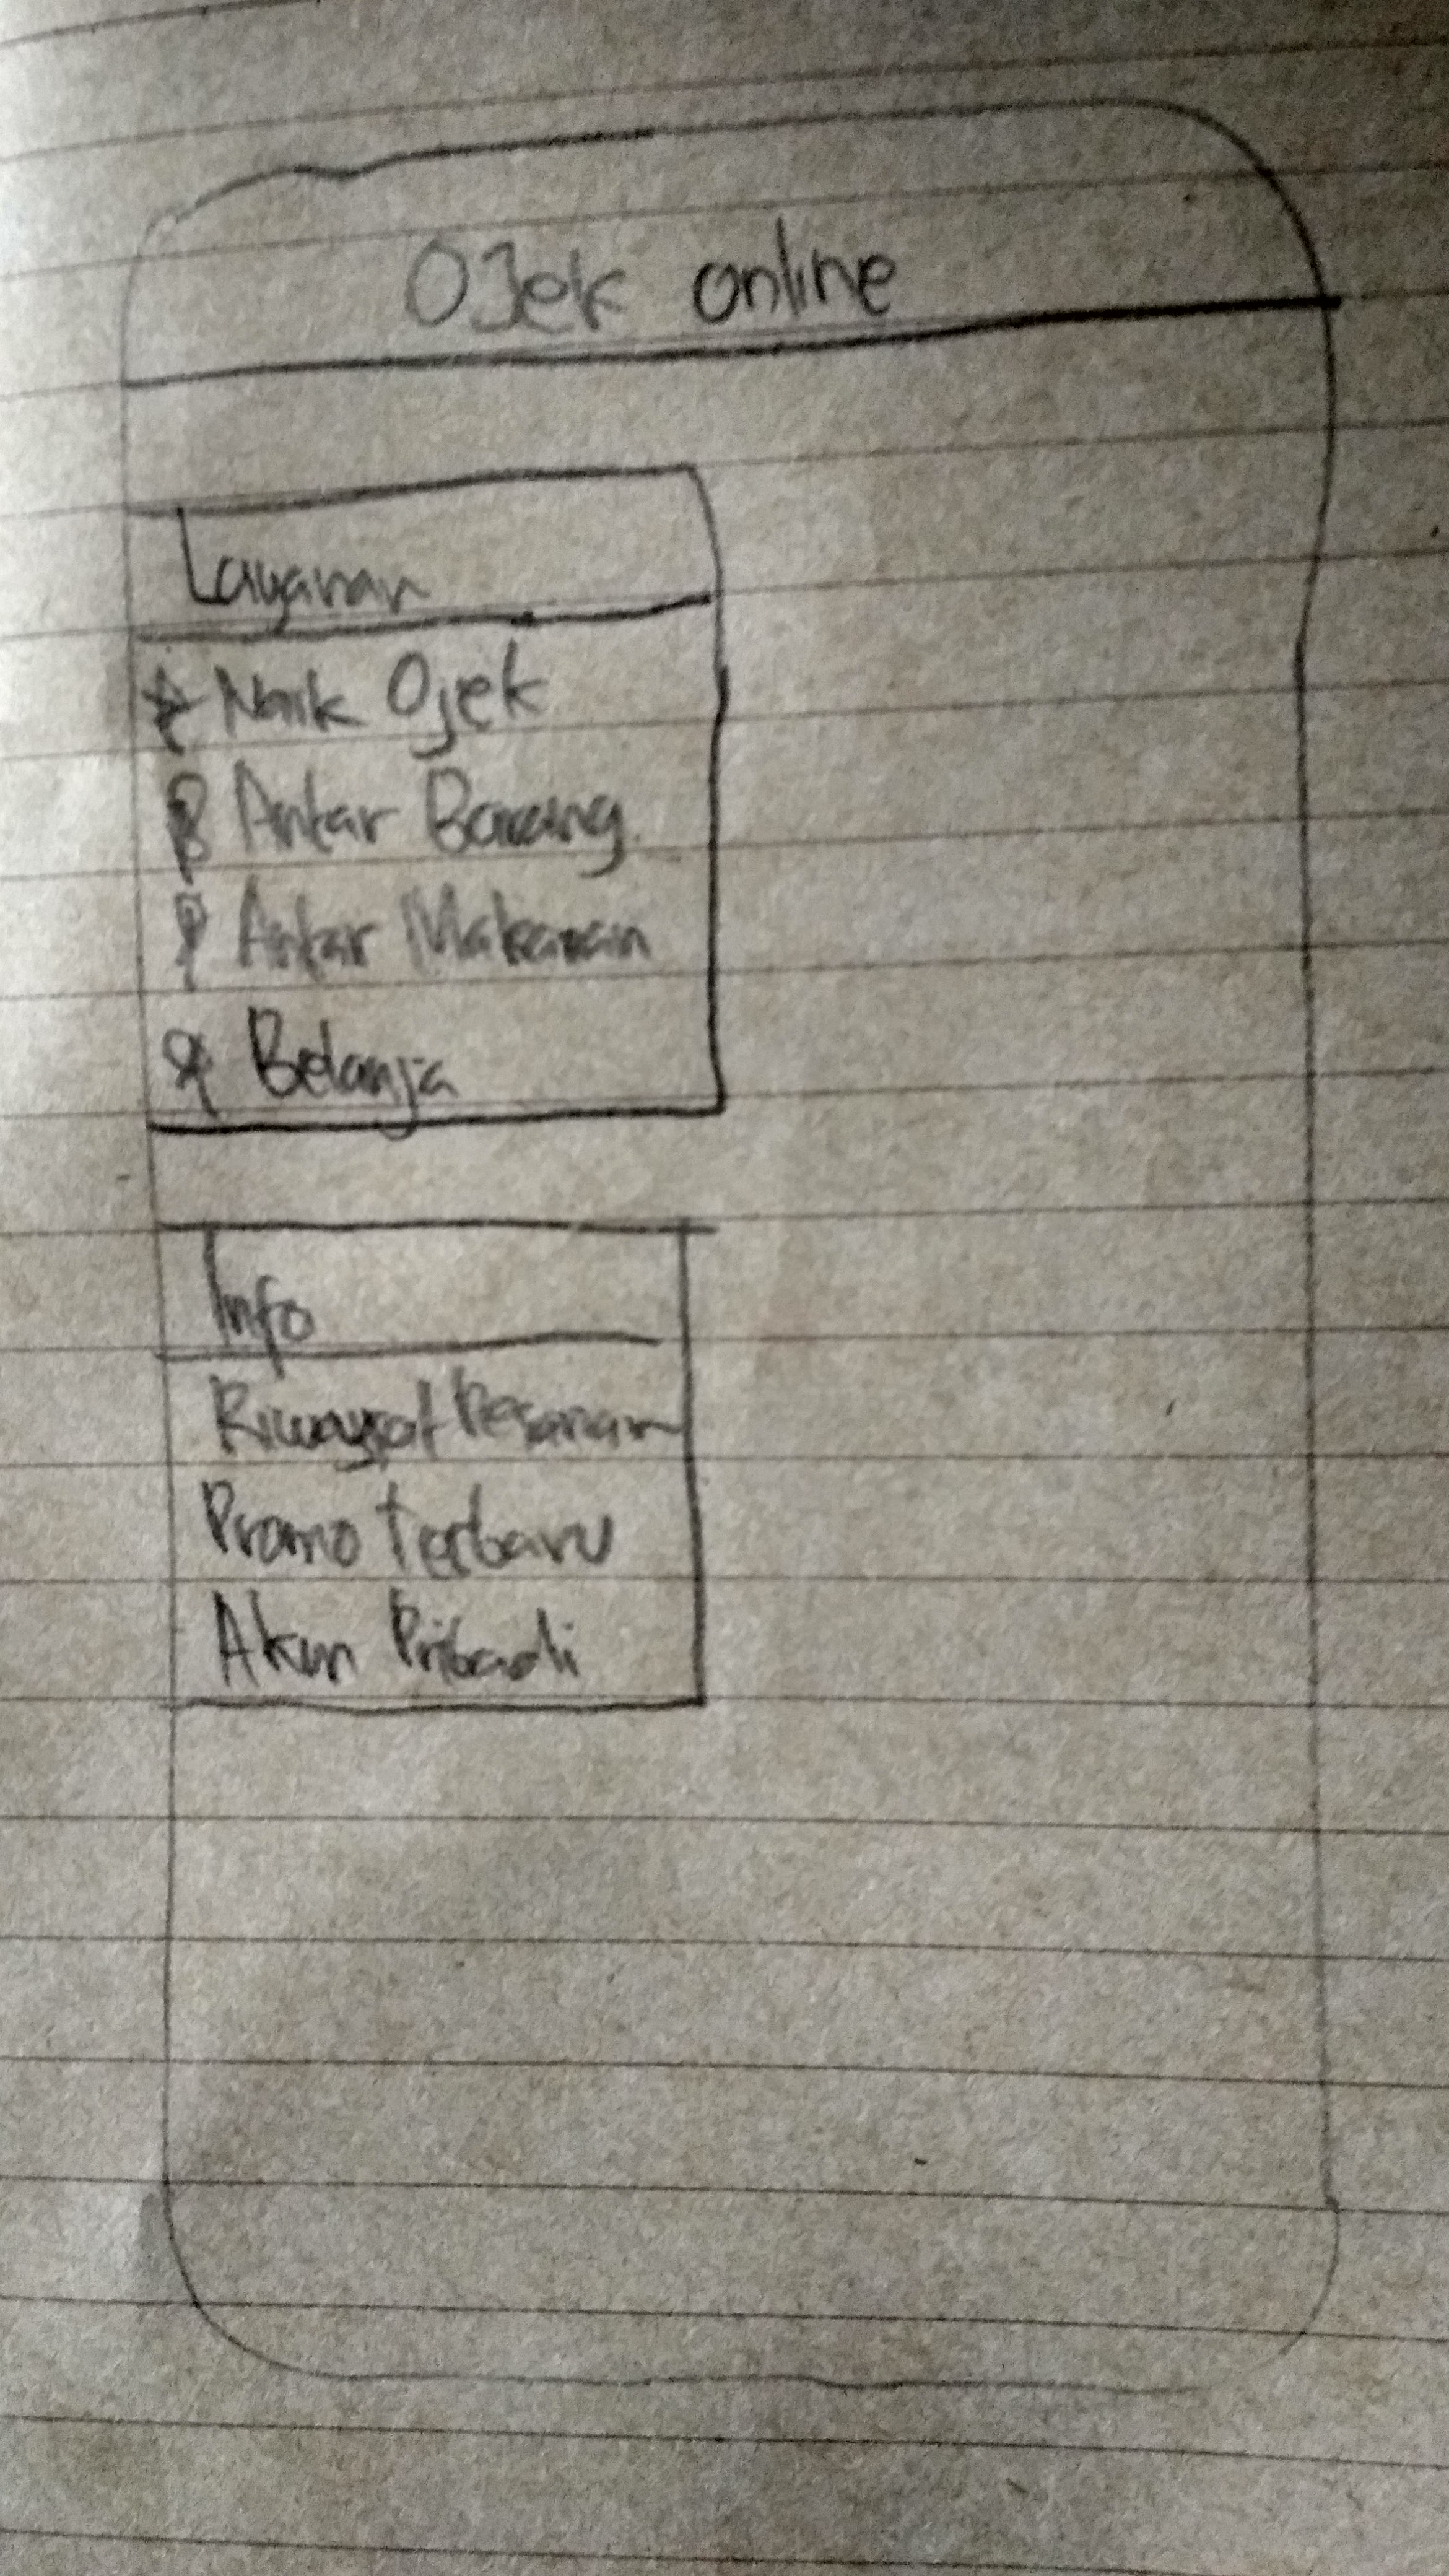 OJek online
Layanan
Naik Ojek
Antar Barang
Antar Makanan
Belanja
Info
Riwayat Pesanan
Promo terbaru
Akun Pribadi